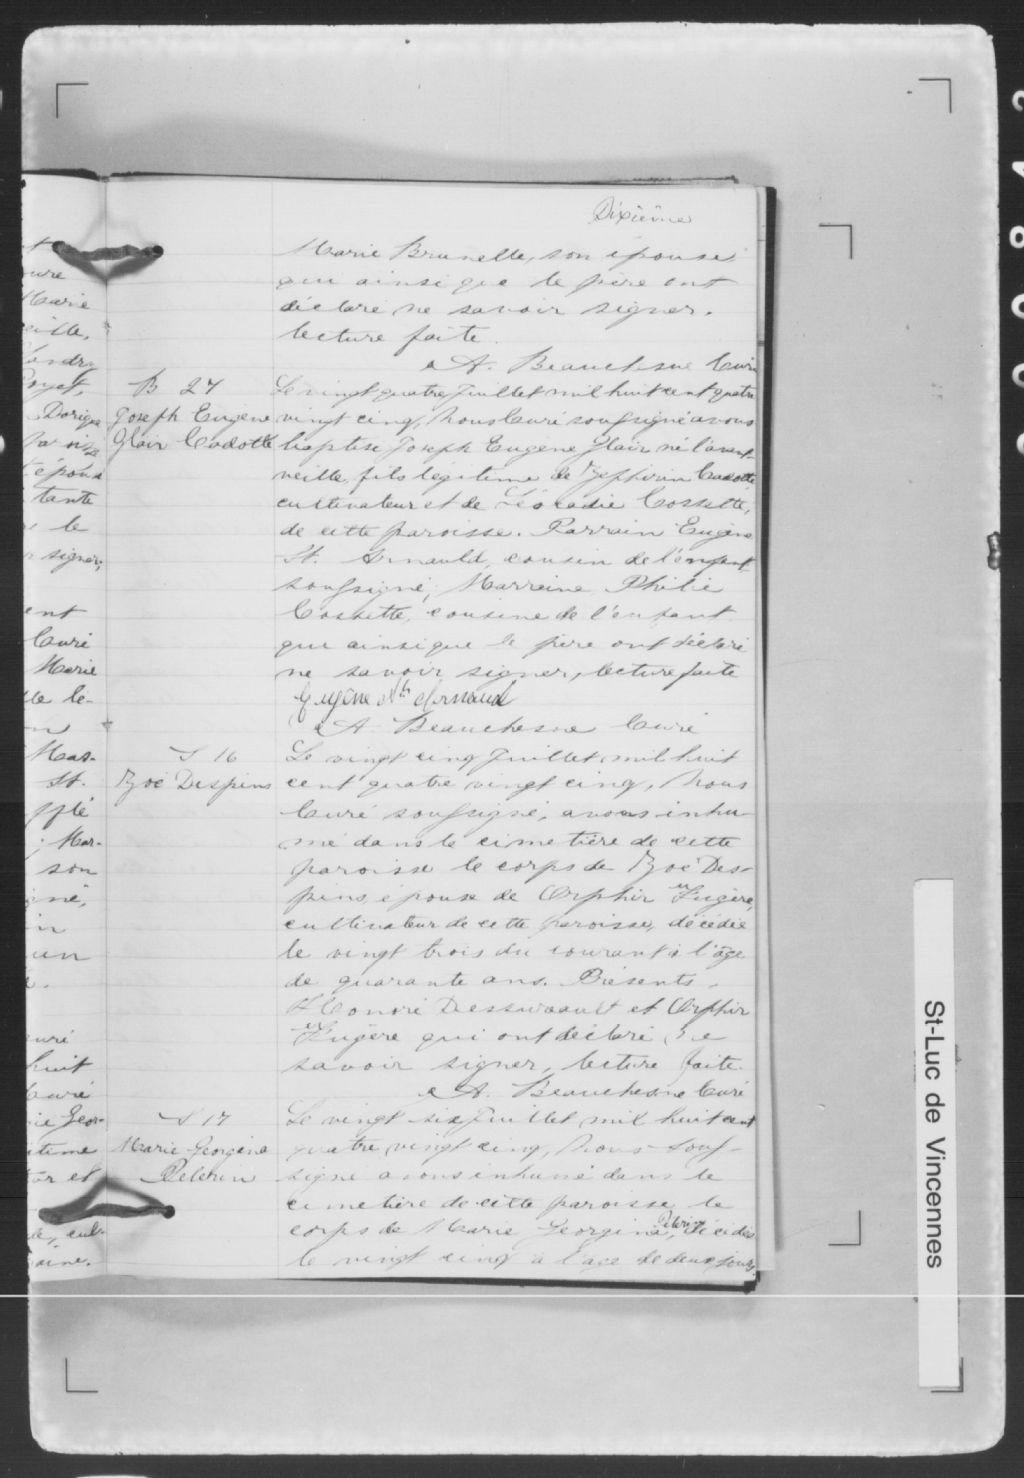 Dixième
Marie Brunelle, son épouse
qui ainsi que le père ont
déclaré ne savoir signer.
lecture faite.
A. Beauchesne Curé
B 27
Joseph Eugène
Glair Cadotte
Le vingt quatre Juillet mil huit cent quatre
vingt cinq, Nous Curé soussigné avons
baptisé Joseph Eugène Glair né l'avant-
veille, fils légitime de Zéphirin Cadotte,
cultivateur et de Léocadie Cossette,
de cette paroisse. Parrain Eugène
St. Arnauld, cousin de l'enfant
soussigné; Marraine Philie
Cossette, cousine de l'enfant
qui ainsi que le père ont déclaré
ne savoir signer, lecture faite
Eugène St Arnaud
A. Beauchesne Curé
S 16
Zoé Despins
Le vingt cinq Juillet mil huit
cent quatre vingt cinq, Nous
Curé soussigné, avons inhu-
mé dans le cimetière de cette
paroisse le corps de Zoé Des-
pins, épouse de Orphir Fugère,
cultivateur de cette paroisse, décédée
le vingt trois du courant à l'âge
de quarante ans. Présents,
Honoré Dessureault et Orphir
Fugère qui ont déclaré ne
savoir signer, lecture faite.
A. Beauchesne Curé
S 17
Marie-Georgina
Pelerin
Le vingt six Juillet mil huit cent
quatre vingt cinq, Nous sous-
signé avons inhumé dans le
cimetière de cette paroisse le
corps de Marie Georgina Pelerin, décédée
le vingt cinq à l'age de deux jours,
St-Luc de Vincennes